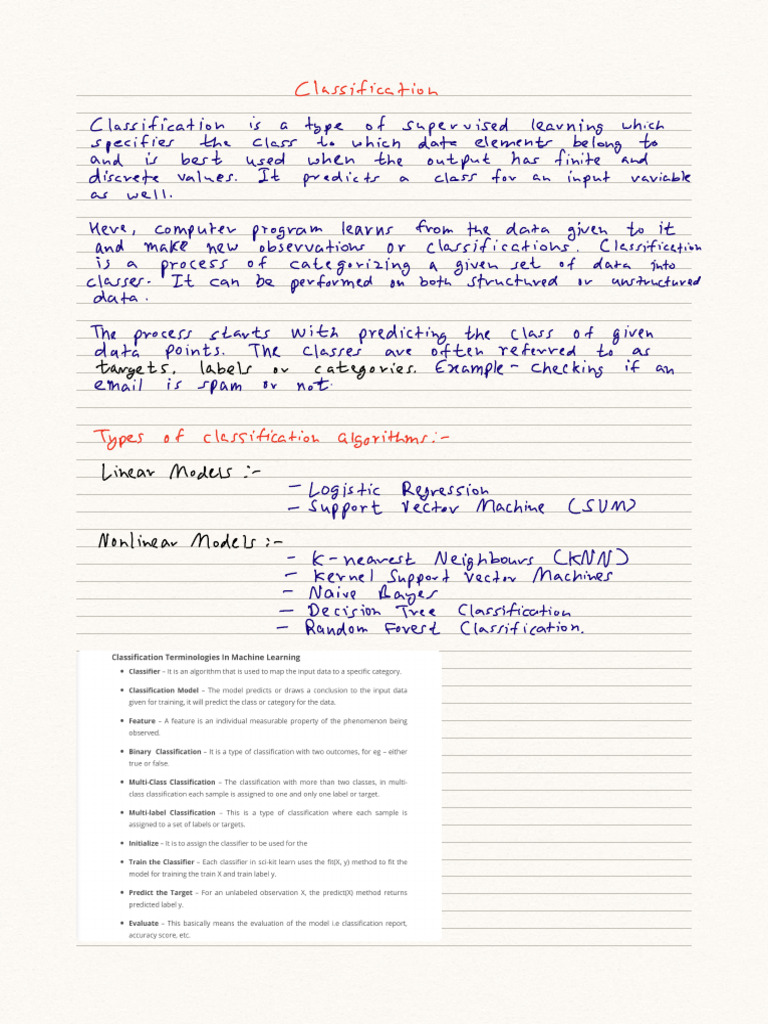 Classification
Classification is a type of supervised learning which
specifies the class to which data elements belong to
and is best used when the output has finite and
discrete values. It predicts a class for an input variable
as well.
Here, computer program learns from the data given to it
and make new observations or classifications. Classification
is a process of categorizing a given set of data into
classes. It can be performed on both structured or unstructured
data.
The process starts with predicting the class of given
data points. The classes are often referred to as
targets, labels or categories. Example - Checking if an
email is spam or not.
Types of classification algorithms:-
Linear Models :-
- Logistic Regression
- Support Vector Machine (SVM)
Nonlinear Models :-
- K-nearest Neighbours (KNN)
- Kernel Support Vector Machines
- Naive Bayes
- Decision Tree Classification
- Random Forest Classification.
Classification Terminologies In Machine Learning
• Classifier – It is an algorithm that is used to map the input data to a specific category.
• Classification Model – The model predicts or draws a conclusion to the input data
given for training, it will predict the class or category for the data.
• Feature – A feature is an individual measurable property of the phenomenon being
observed.
• Binary Classification – It is a type of classification with two outcomes, for eg – either
true or false.
• Multi-Class Classification – The classification with more than two classes, in multi-
class classification each sample is assigned to one and only one label or target.
• Multi-label Classification – This is a type of classification where each sample is
assigned to a set of labels or targets.
• Initialize – It is to assign the classifier to be used for the
• Train the Classifier – Each classifier in sci-kit learn uses the fit(X, y) method to fit the
model for training the train X and train label y.
• Predict the Target – For an unlabeled observation X, the predict(X) method returns
predicted label y.
• Evaluate – This basically means the evaluation of the model i.e classification report,
accuracy score, etc.